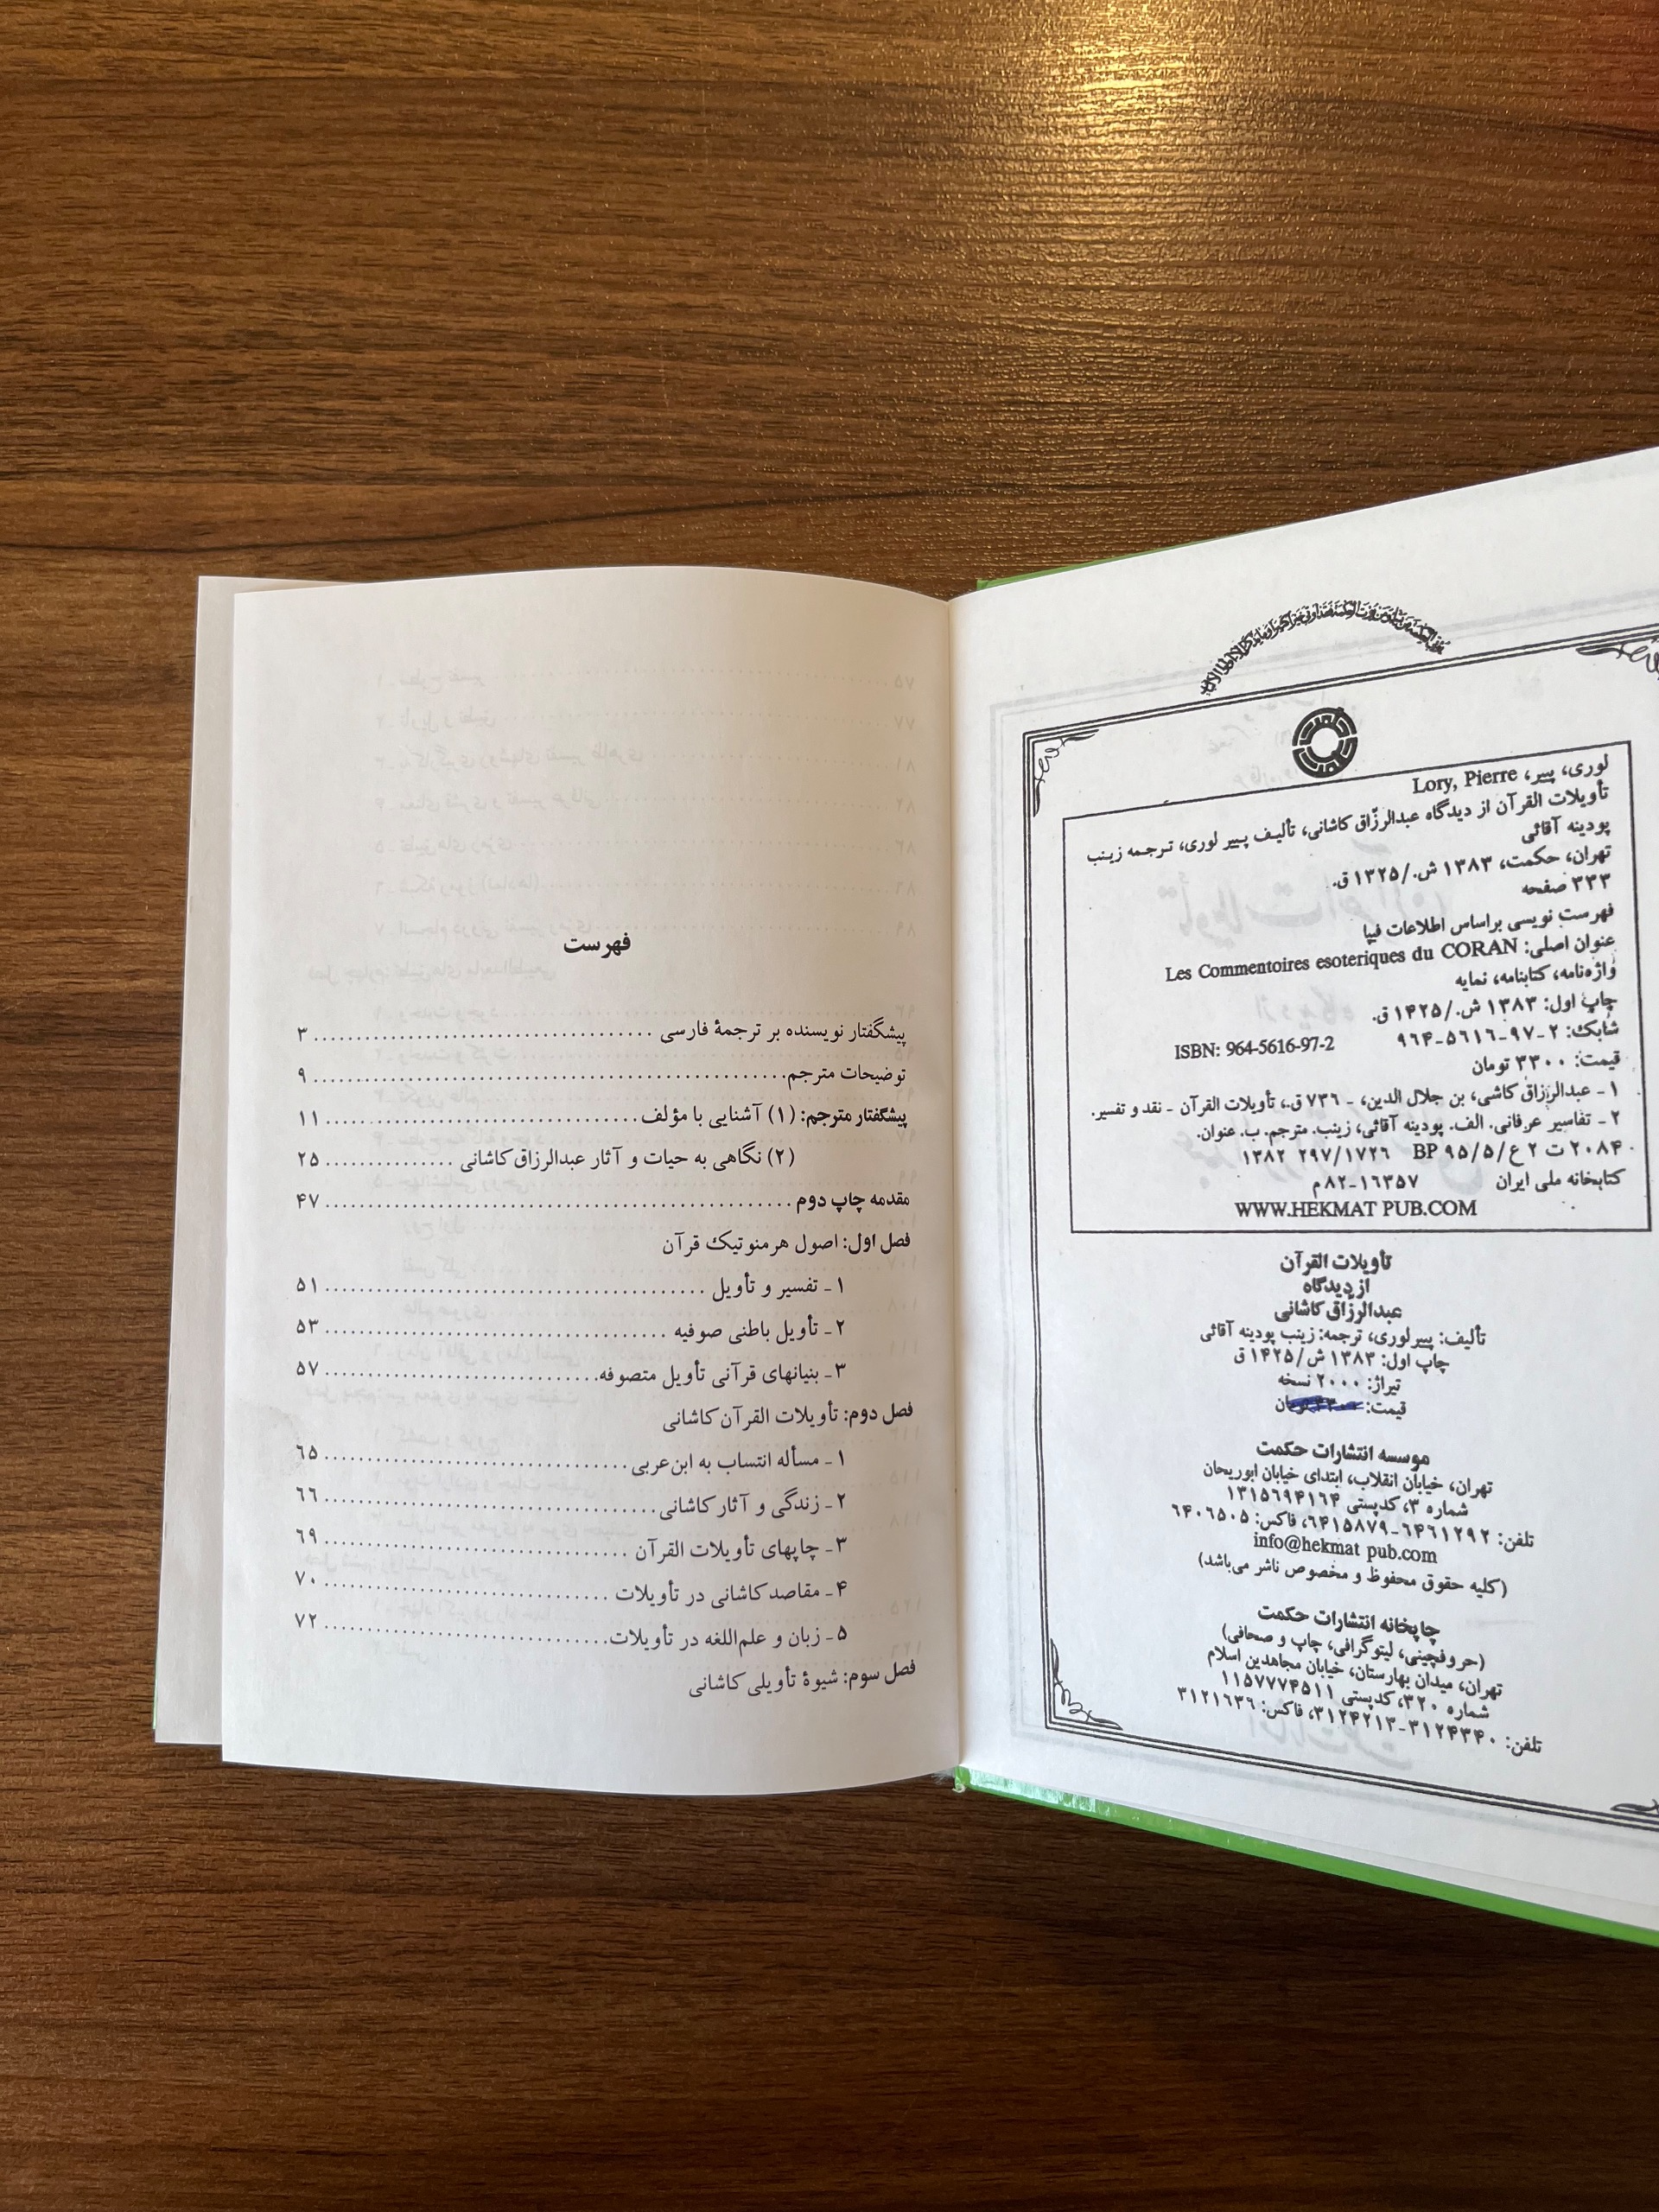 لوری، پییر، Lory, Pierre
تأویلات القرآن از دیدگاه عبدالرزّاق کاشانی، تألیف پییر لوری، ترجمه زینب
پودینه آقائی
تهران، حکمت، ۱۳۸۳ ش./۱۳۲۵ ق.
۳۳۳ صفحه
فهرست نویسی براساس اطلاعات فیپا
عنوان اصلی: Les Commentoires esoteriques du CORAN
واژه‌نامه، کتابنامه، نمایه
چاپ اول: ۱۳۸۳ ش./۱۴۲۵ ق.
شابک: ۲-۹۷-۵۶۱۶-۹۶۴ ISBN: 964-5616-97-2
قیمت: ۳۳۰۰ تومان
۱ - عبدالرزاق کاشی، بن جلال الدین، - ۷۳۶ ق.، تأویلات القرآن - نقد و تفسیر.
۲ - تفاسیر عرفانی. الف. پودینه آقائی، زینب. مترجم. ب. عنوان.
۲۰۸۴ ت ۲ ع/۵/۹۵ BP ۲۹۷/۱۷۲۶ ۱۳۸۲
کتابخانه ملی ایران ۱۶۳۵۷-۸۲م
WWW.HEKMAT PUB.COM
تأویلات القرآن
از دیدگاه
عبدالرزّاق کاشانی
تألیف: پییرلوری، ترجمه: زینب پودینه آقائی
چاپ اول: ۱۳۸۳ ش/۱۴۲۵ ق
تیراژ: ۲۰۰۰ نسخه
قیمت:
موسسه انتشارات حکمت
تهران، خیابان انقلاب، ابتدای خیابان ابوریحان
شماره ۳، کدپستی ۱۳۱۵۶۹۴۱۶۴
تلفن: ۶۴۶۱۲۹۲-۶۴۱۵۸۷۹، فاکس: ۶۴۰۶۵۰۵
info@hekmat pub.com
(کلیه حقوق محفوظ و مخصوص ناشر می‌باشد)
چاپخانه انتشارات حکمت
(حروفچینی، لیتوگرافی، چاپ و صحافی)
تهران، میدان بهارستان، خیابان مجاهدین اسلام
شماره ۳۲۰، کدپستی ۱۱۵۷۷۷۴۵۱۱
تلفن: ۳۱۲۴۳۴۰-۳۱۲۴۲۱۳، فاکس: ۳۱۲۱۶۳۶
فهرست
پیشگفتار نویسنده بر ترجمهٔ فارسی ۳
توضیحات مترجم ۹
پیشگفتار مترجم: (۱) آشنایی با مؤلف ۱۱
(۲) نگاهی به حیات و آثار عبدالرزاق کاشانی ۲۵
مقدمه چاپ دوم ۴۷
فصل اول: اصول هرمنوتیک قرآن
۱ - تفسیر و تأویل ۵۱
۲ - تأویل باطنی صوفیه ۵۳
۳ - بنیانهای قرآنی تأویل متصوفه ۵۷
فصل دوم: تأویلات القرآن کاشانی
۱ - مسأله انتساب به ابن‌عربی ۶۵
۲ - زندگی و آثار کاشانی ۶۶
۳ - چاپهای تأویلات القرآن ۶۹
۴ - مقاصد کاشانی در تأویلات ۷۰
۵ - زبان و علم‌اللغه در تأویلات ۷۲
فصل سوم: شیوهٔ تأویلی کاشانی